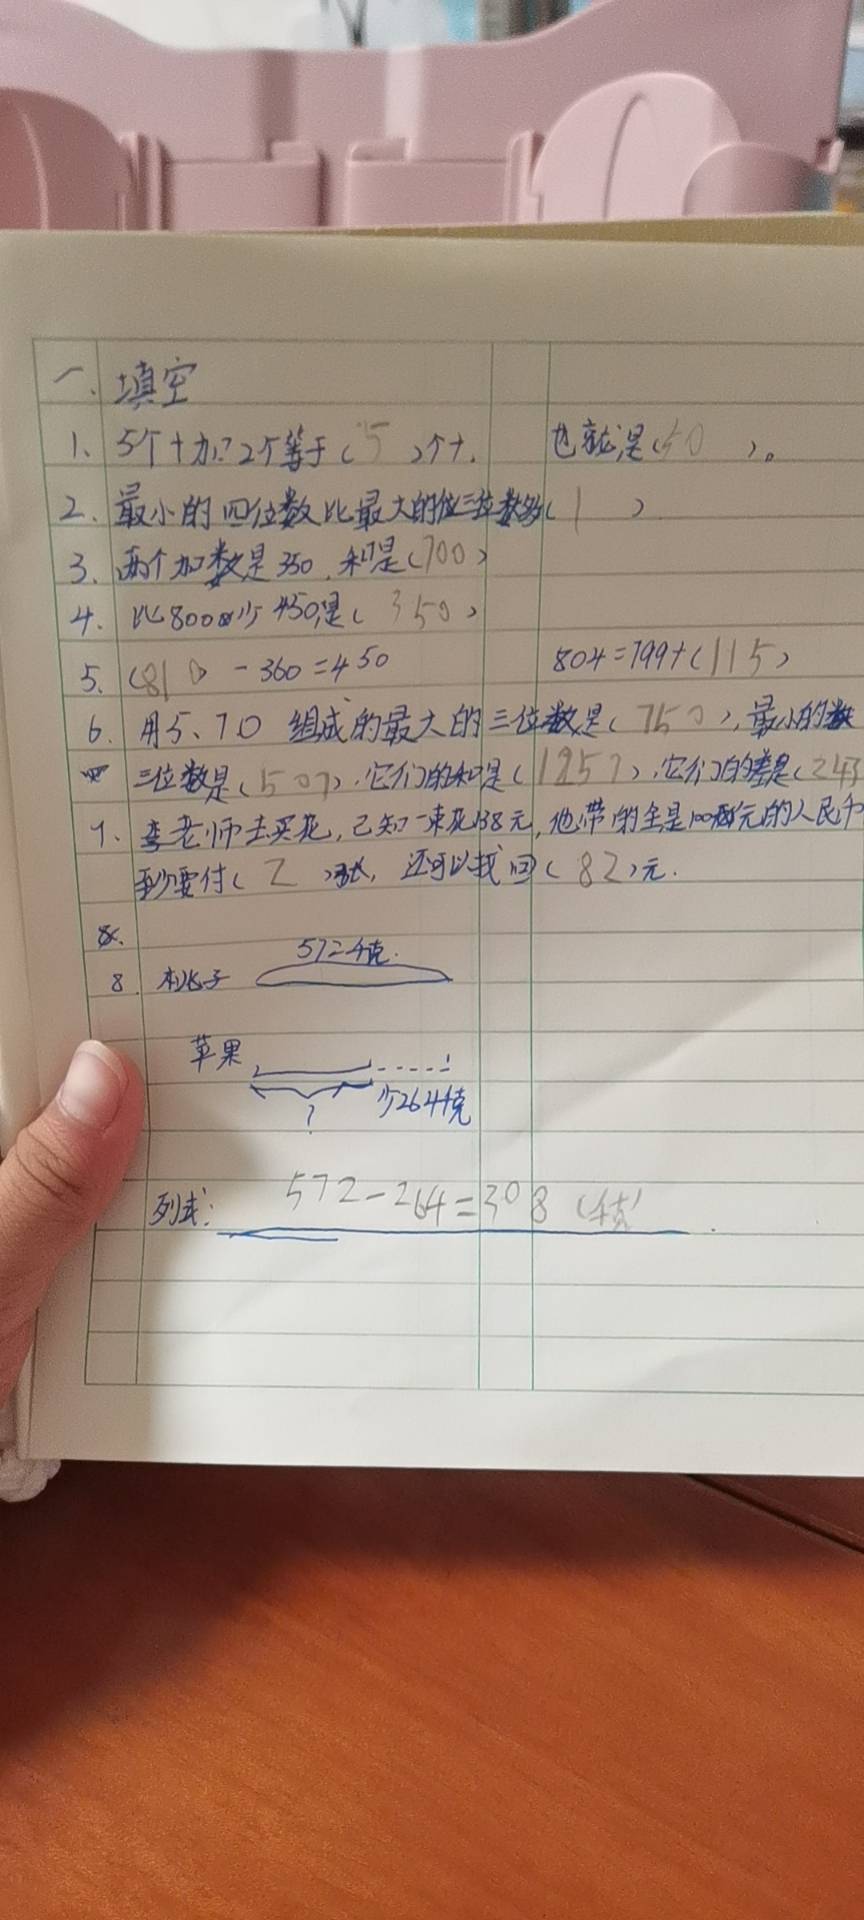 一、填空
1、5个十加2个等于( 5 )个十. 也就是(50 )。
2、最小的四位数比最大的三位数多(1 )
3、两个加数是350,和是(700)
4、比800少450是( 350)
5、(810) - 360 = 450 804 = 799+(115)
6、用5、7 0 组成的最大的三位数是(750),最小的数
三位数是(507),它们的和是(1257),它们的差是(243
7、李老师去买花,已知一束花138元,他带的全是100元的人民币
至少要付( 2 )张, 还可以找回(82)元.
8. 572千克.
桃子
苹果
? 少264千克
列式: 572-264=308 (千克)